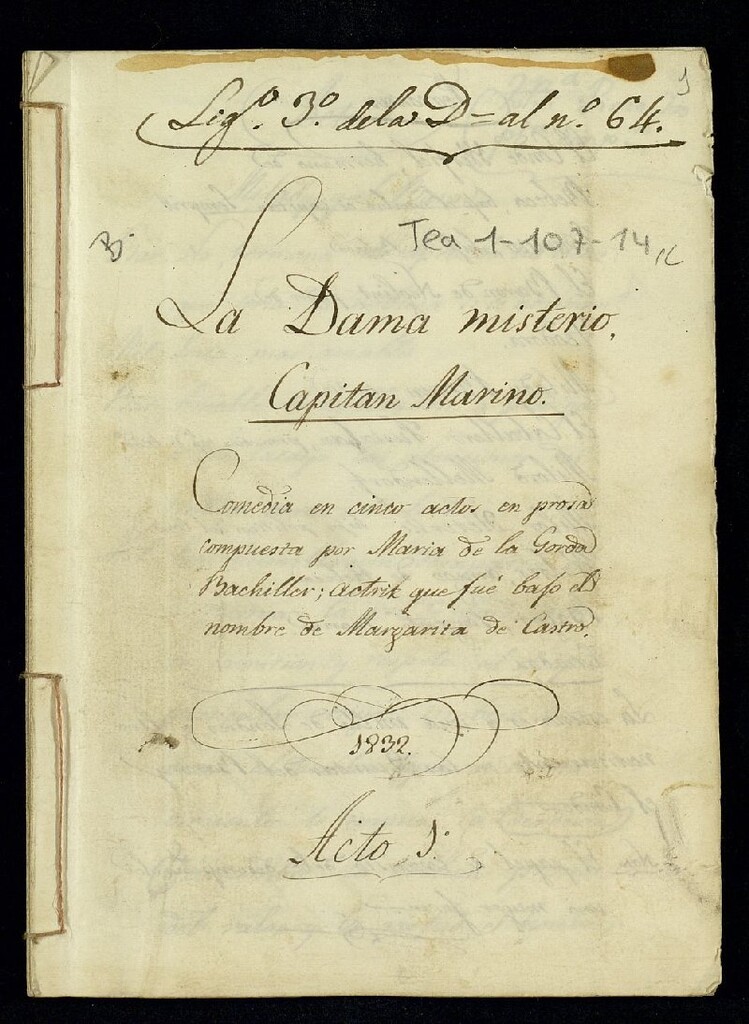 Lig.º 3.º de la D = al n.º 64.
Tea 1-107-14
La Dama misterio,
Capitan Marino.
Comedia en cinco actos en prosa
compuesta por Maria de la Gorda
Bachiller; actriz que fué bajo el
nombre de Margarita de Castro.
1832.
Acto 1.º